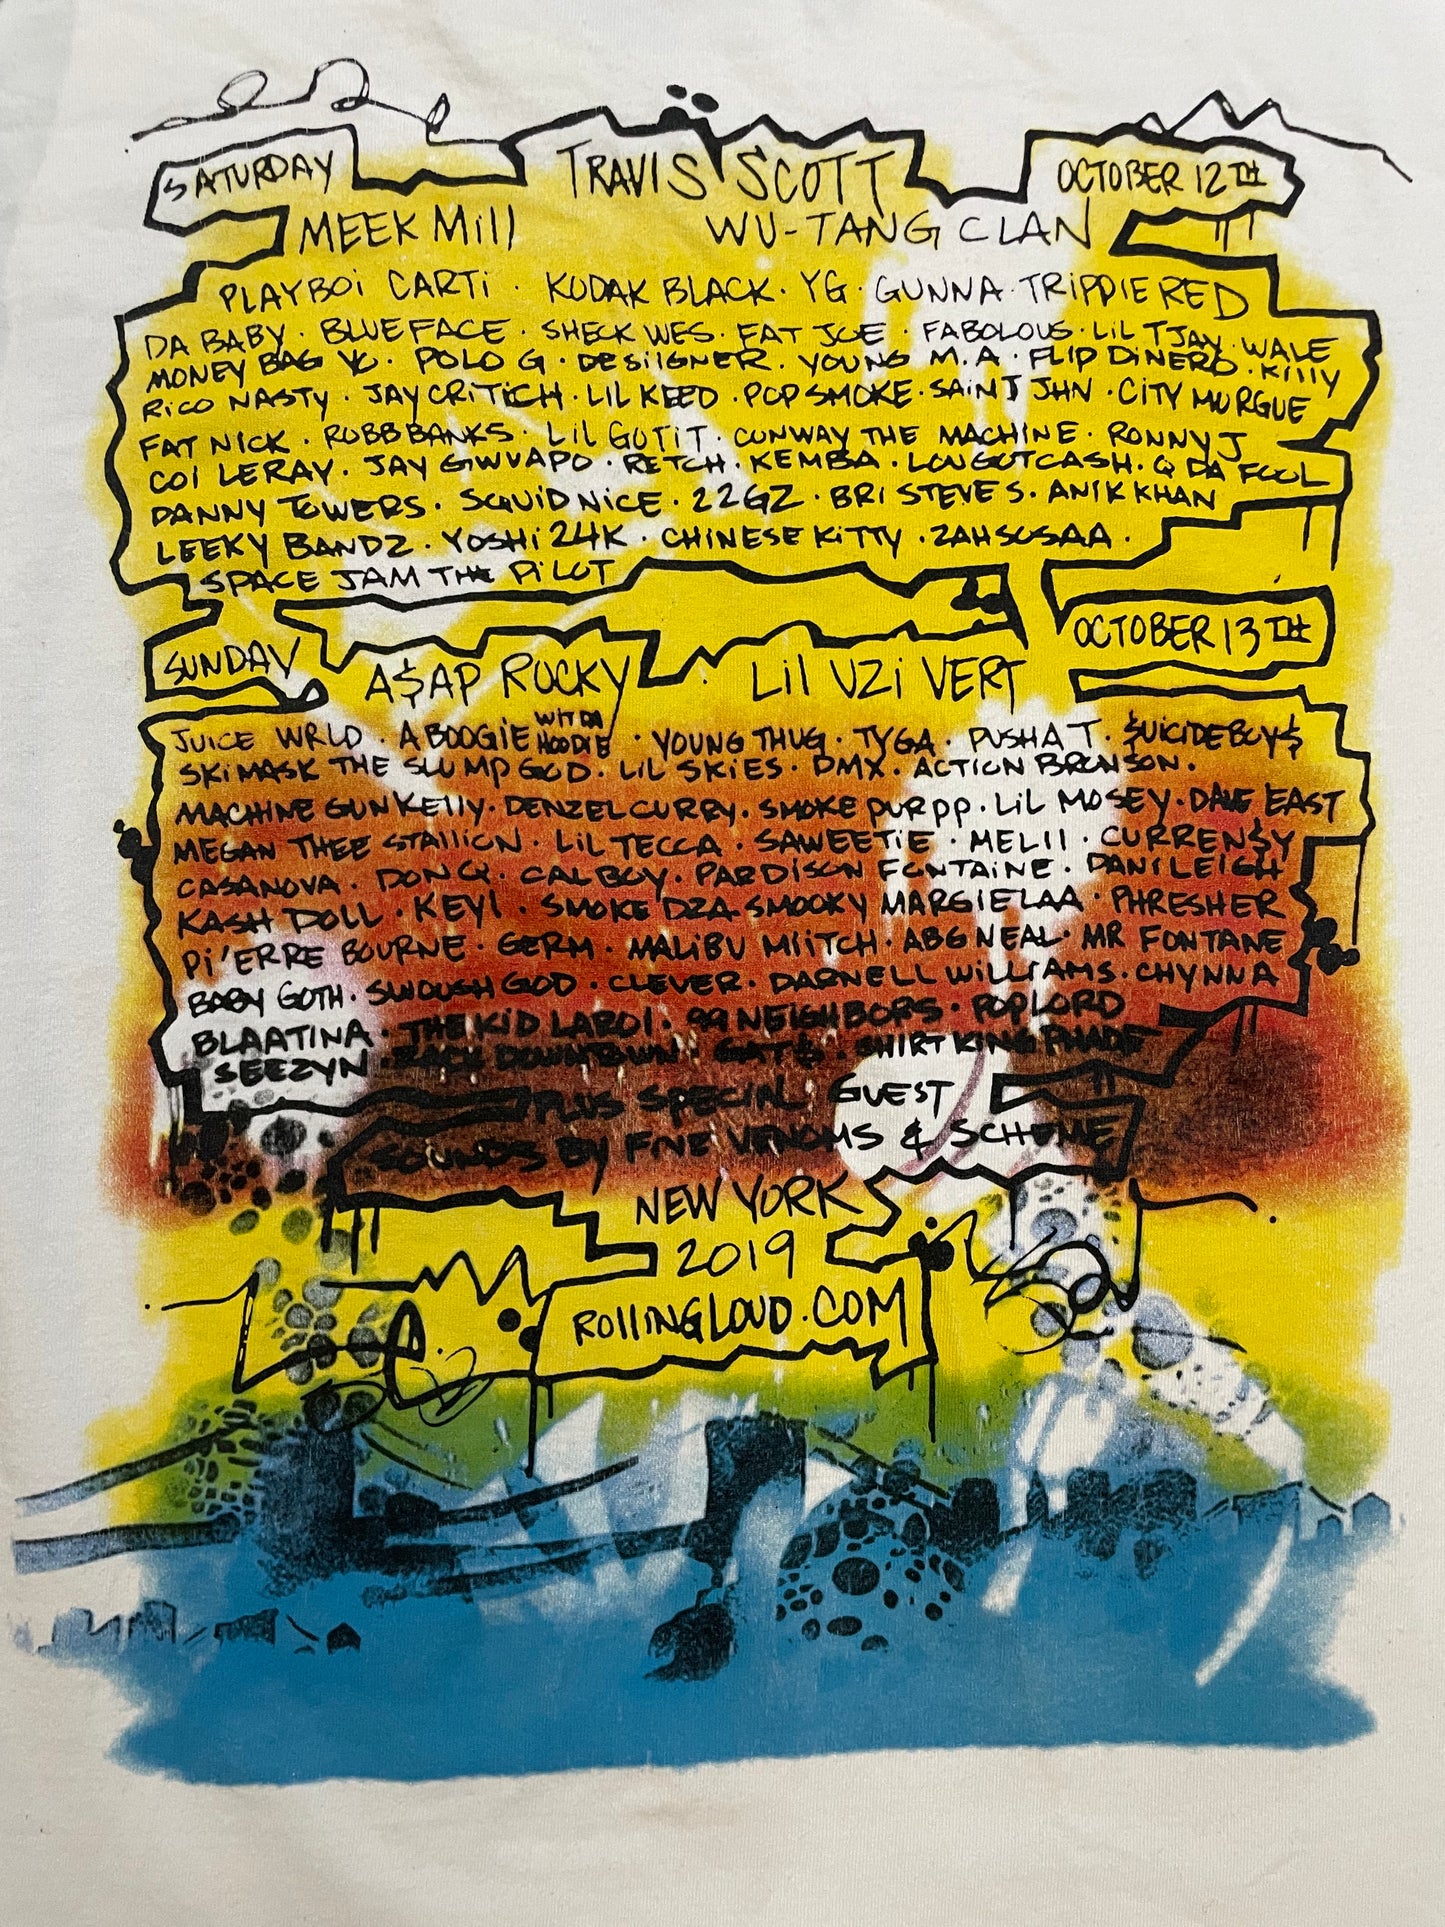 SATURDAY TRAVIS SCOTT OCTOBER 12TH
MEEK MiLL WU-TANG CLAN
PLAYBOi CARTi · KODAK BLACK · YG · GUNNA · TRiPPIE RED
DA BABY · BLUEFACE · SHECK WES · FAT JOE · FABOLOUS · LiL TJAY · WALE
MONEY BAG YO · POLO G · DESiiGNER · YOUNG M.A · FLIP DiNERO · KiLLY
RiCO NASTY · JAY CRiTiCH · LIL KEED · POP SMOKE · SAiNT JHN · CiTY MORGUE
FAT NICK · ROBB BANKS · LiL GOTiT · CONWAY THE MACHINE · RONNY J
COI LERAY · JAY GWUAPO · RETCH · KEMBA · LOUGOTCASH · Q DA FOOL
DANNY TOWERS · SQUiD NiCE · 22GZ · BRI STEVES · ANIK KHAN
LEEKY BANDZ · YOSHi 24K · CHINESE KiTTY · ZAHSOSAA ·
SPACE JAM THE PiLOT
SUNDAY A$AP ROCKY LiL UZi VERT OCTOBER 13TH
JUICE WRLD · A BOOGiE WIT DA HOODIE · YOUNG THUG · TYGA · PUSHA T · $UICIDEBOY$
SKiMASK THE SLUMP GOD · LiL SKiES · DMX · ACTION BRONSON ·
MACHINE GUN KELLY · DENZEL CURRY · SMOKE PURPP · LiL MOSEY · DAVE EAST
MEGAN THEE STALLION · LiL TECCA · SAWEETiE · MELII · CURREN$Y
CASANOVA · DON Q · CALBOY · PARDISON FONTAiNE · DANILEIGH
KASH DOLL · KEY! · SMOKE DZA · SMOOKY MARGIELAA · PHRESHER
Pi'ERRE BOURNE · GERM · MALiBU MiiTCH · ABG NEAL · MR FONTAINE
BABY GOTH · SWOUSH GOD · CLEVER · DARNELL WiLLIAMS · CHYNNA
BLAATINA · THE KiD LAROI · 99 NEIGHBORS · POP LORD
SEEZYN · ZACK DOWNTOWN · GAT$ · SHIRT KING PHADE
PLUS SPECIAL GUEST
SOUNDS BY FIVE VENOMS & SCHEME
NEW YORK
2019
ROLLiNGLOUD.COM